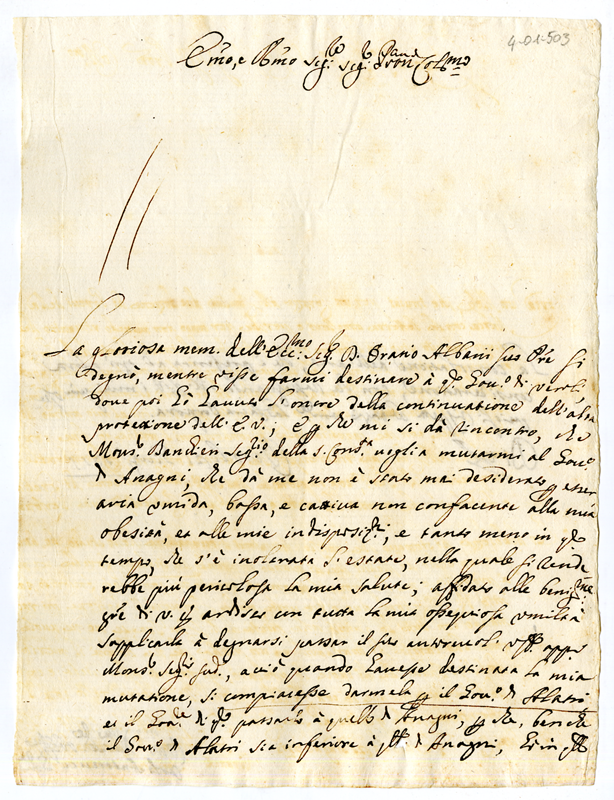 4-01-503
Emo, e Rmo Sigr Sigr Pron Colmo
La gloriosa mem. dell' Eccmo Sigr D. Oratio Albani suo Pre si
degnò, mentre visse farmi destinare à qo Govo di Veroli
dove poi hò havuto l'onore della continuatione dell'alta
protezione dell' E.V.; e p che mi si dà rincontro, che
Monsr Banchieri Segrio della S. Consta voglia mutarmi al Govo
di Anagni, che dà me non è stato mai desiderato p esser
aria umida, bassa, e cattiva non confacente alla mia
obesità, et alle mie indisposizni, e tanto meno in qo
tempo, che s'è inoltrata l'estate, nella quale si rende
rebbe più pericolosa la mia salute; affidato alle benigne
gre di V.E. ardisco con tutta la mia ossequiosa umiltà
supplicarla à degnarsi passar il suo autorevol. appo
Monsr Segrio sudo, acciò quando havesse destinata la mia
mutatione, si compiacesse darmela p il Govo di Alatri
et il Govre di qo passarlo à quello di Anagni, p che, benche
il Govo di Alatri sia inferiore à qllo di Anagni,